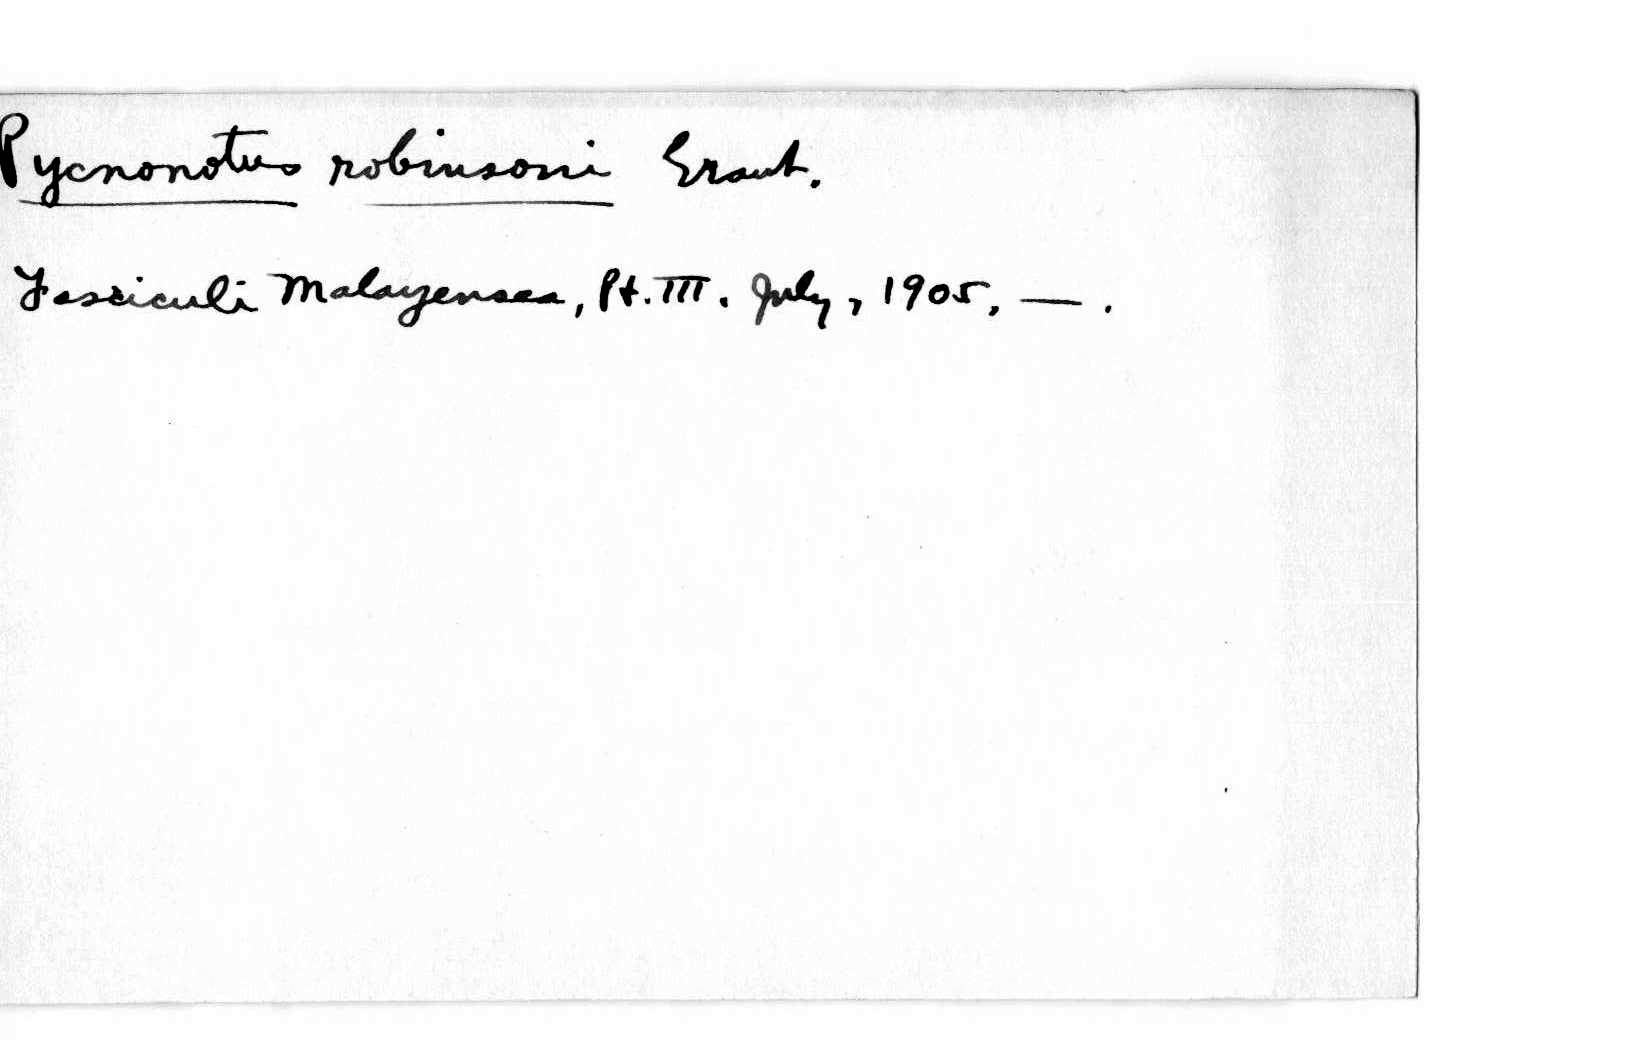 Pycnonotus robinsoni Grant.
Fasciculi Malayenses, Pt. III. July, 1905, — .